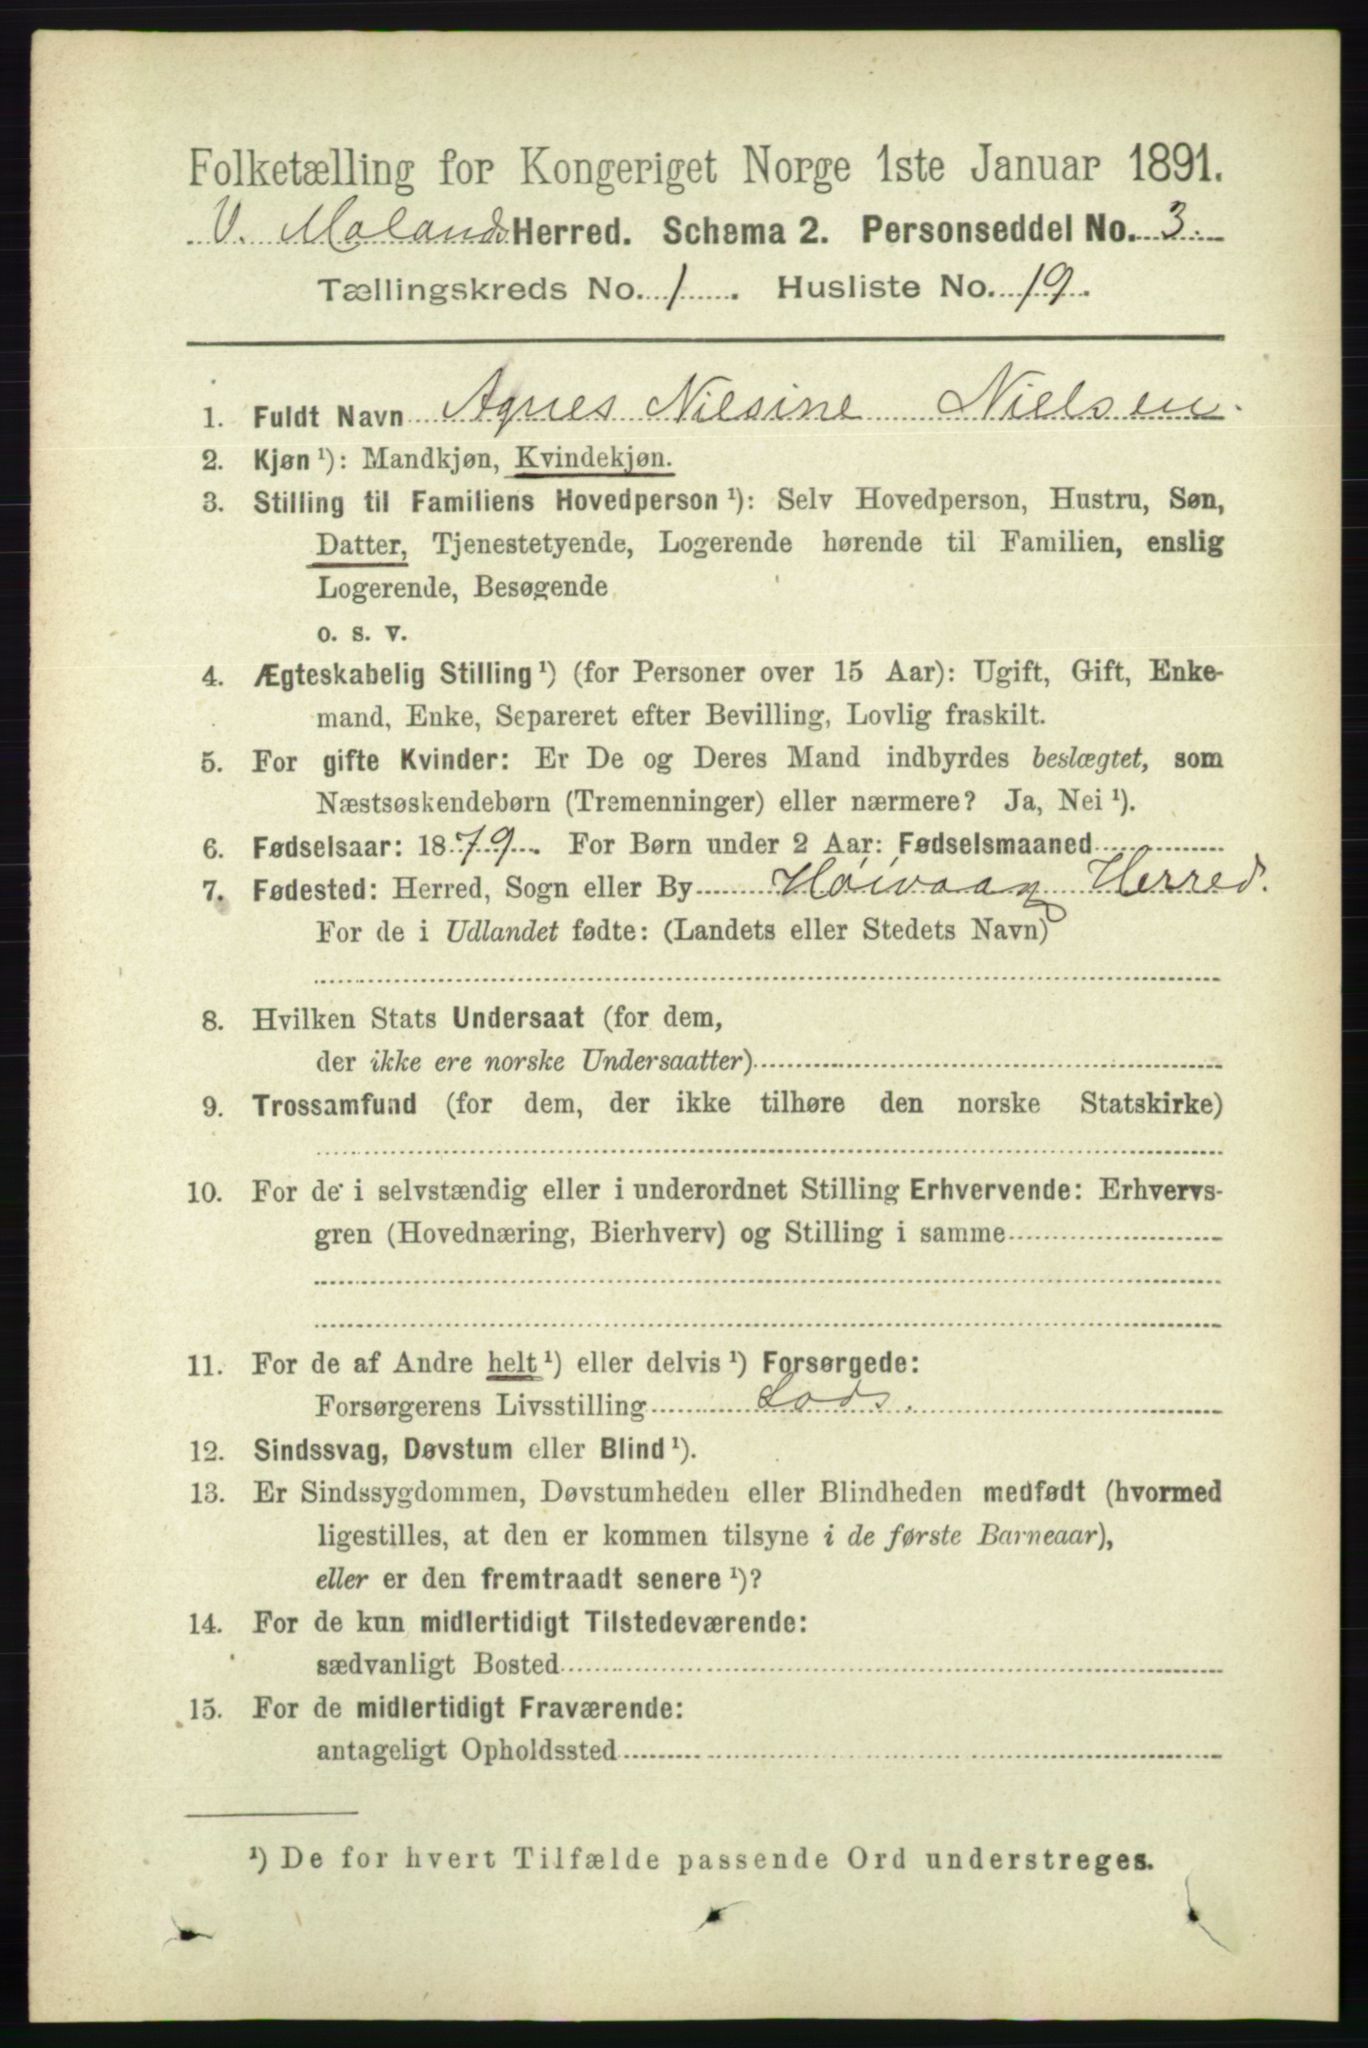 Folketælling for Kongeriget Norge 1ste Januar 1891.
V. Molands Herred. Schema 2. Personseddel No. 3.
Tællingskreds No. 1. Husliste No. 19.
1. Fuldt Navn Agnes Nilsine Nielsen.
2. Kjøn ¹): Mandkjøn, Kvindekjøn.
3. Stilling til Familiens Hovedperson ¹): Selv Hovedperson, Hustru, Søn,
Datter, Tjenestetyende, Logerende hørende til Familien, enslig
Logerende, Besøgende
o. s. v.
4. Ægteskabelig Stilling ¹) (for Personer over 15 Aar): Ugift, Gift, Enke-
mand, Enke, Separeret efter Bevilling, Lovlig fraskilt.
5. For gifte Kvinder: Er De og Deres Mand indbyrdes beslægtet, som
Næstsøskendebørn (Tremenninger) eller nærmere? Ja, Nei ¹).
6. Fødselsaar: 1879. For Børn under 2 Aar: Fødselsmaaned
7. Fødested: Herred, Sogn eller By Høivaag Herred.
For de i Udlandet fødte: (Landets eller Stedets Navn)
8. Hvilken Stats Undersaat (for dem,
der ikke ere norske Undersaatter)
9. Trossamfund (for dem, der ikke tilhøre den norske Statskirke)
10. For de i selvstændig eller i underordnet Stilling Erhvervende: Erhvervs-
gren (Hovednæring, Bierhverv) og Stilling i samme
11. For de af Andre helt ¹) eller delvis ¹) Forsørgede:
Forsørgerens Livsstilling Lods.
12. Sindssvag, Døvstum eller Blind ¹).
13. Er Sindssygdommen, Døvstumheden eller Blindheden medfødt (hvormed
ligestilles, at den er kommen tilsyne i de første Barneaar),
eller er den fremtraadt senere ¹)?
14. For de kun midlertidigt Tilstedeværende:
sædvanligt Bosted
15. For de midlertidigt Fraværende:
antageligt Opholdssted
¹) De for hvert Tilfælde passende Ord understreges.